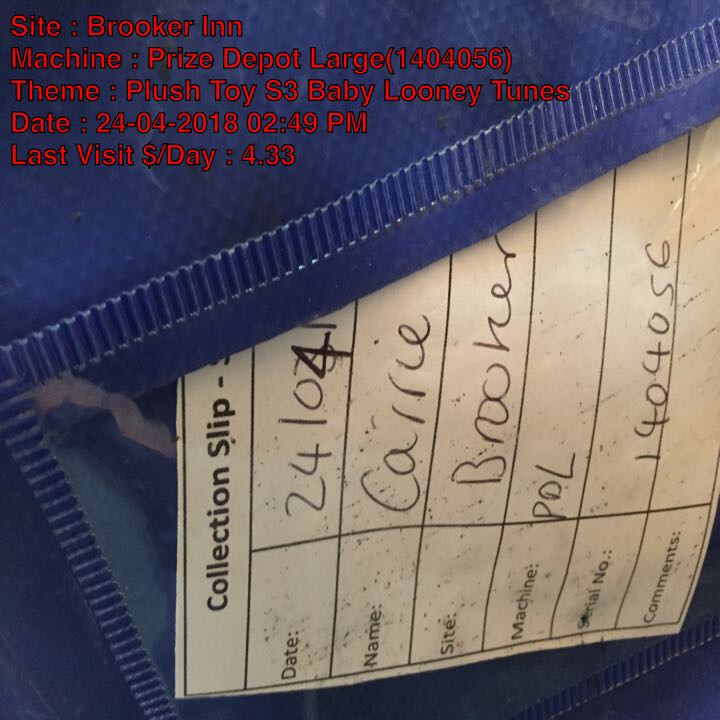 Site : Brooker Inn
Machine : Prize Depot Large(1404056)
Theme : Plush Toy S3 Baby Looney Tunes
Date : 24-04-2018 02:49 PM
Last Visit $/Day : 4.33
Collection Slip -
Date: 24/04/
Name: Carrie
Site: Brooker
Machine: PDL
Serial No.: 1404056
Comments: